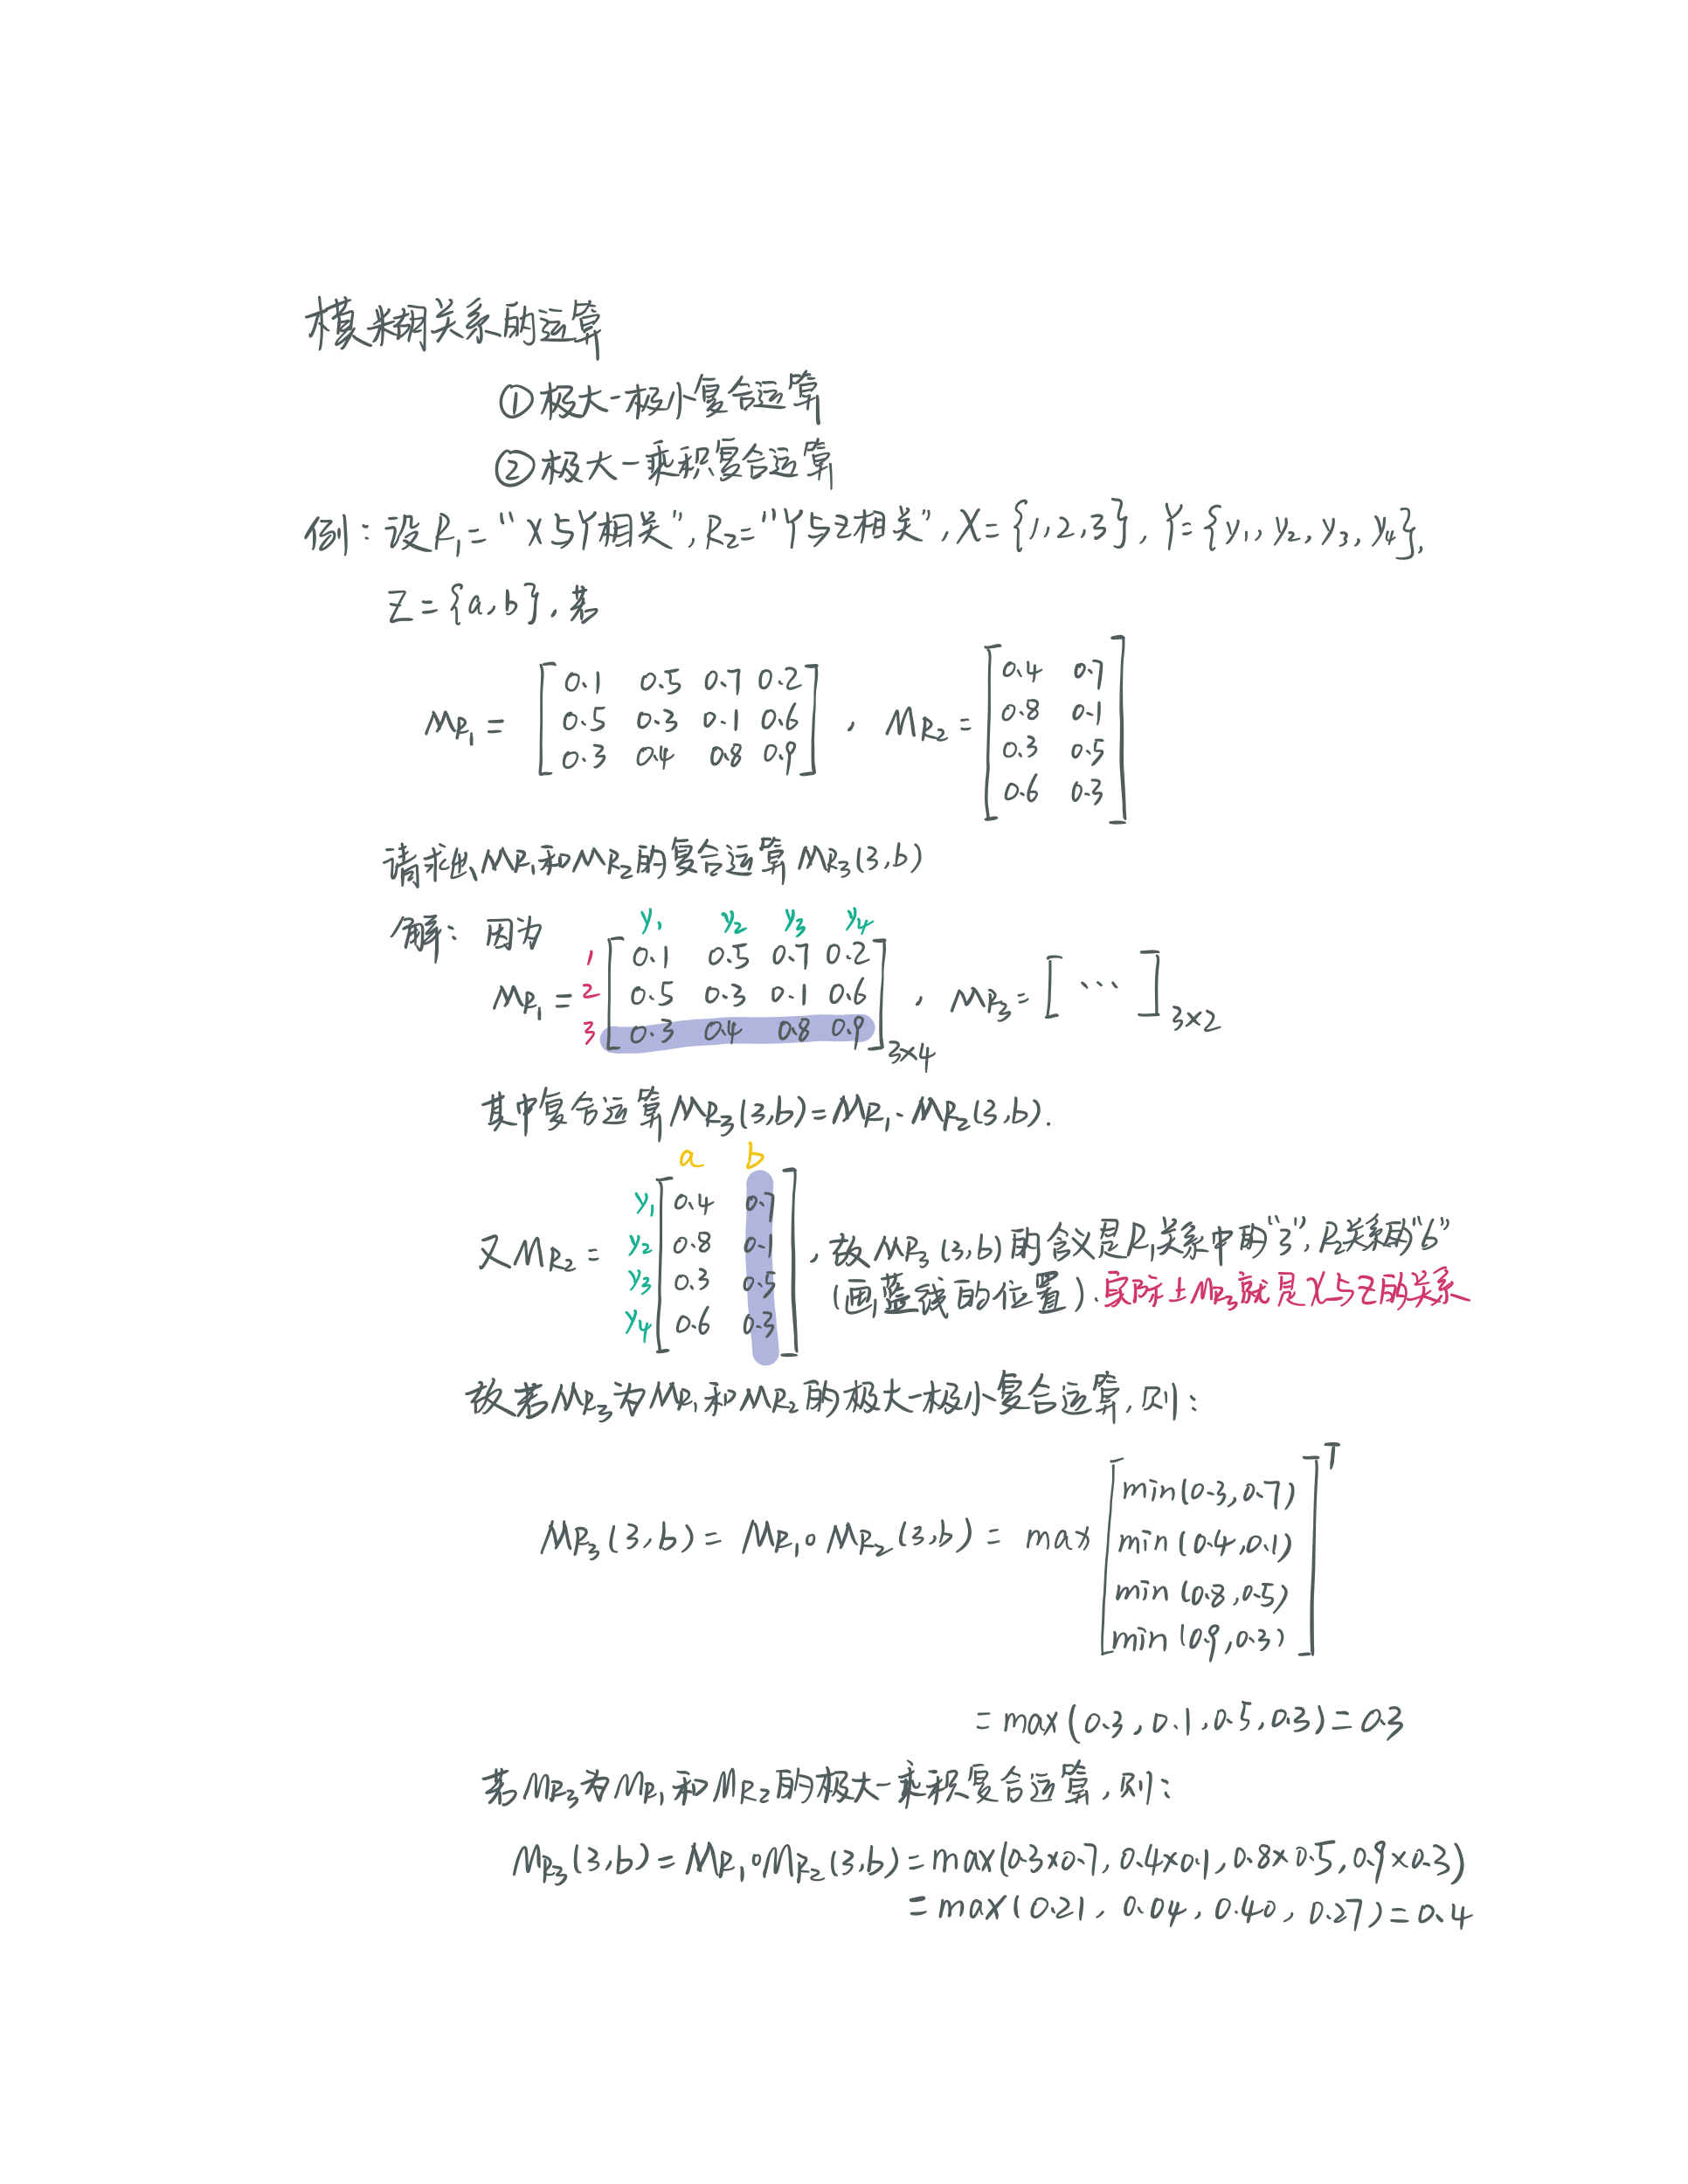 模糊关系的运算
①极大-极小复合运算
②极大-乘积复合运算
例：设R₁=“X与Y相关”,R₂=“Y与Z相关”,X={1,2,3},Y={y₁,y₂,y₃,y₄},
Z={a,b},若
M_R₁= [0.1 0.5 0.7 0.2
0.5 0.3 0.1 0.6
0.3 0.4 0.8 0.9] , M_R₂= [0.4 0.7
0.8 0.1
0.3 0.5
0.6 0.3]
请求出M_R₁和M_R₂的复合运算M_R₃(3,b)
解：因为
y₁ y₂ y₃ y₄
M_R₁= 1 [0.1 0.5 0.7 0.2
2 0.5 0.3 0.1 0.6
3 0.3 0.4 0.8 0.9]3×4 , M_R₃=[ ··· ]3×2
其中复合运算M_R₃(3,b)=M_R₁·M_R₂(3,b).
a b
又M_R₂= y₁ [0.4 0.7
y₂ 0.8 0.1
y₃ 0.3 0.5
y₄ 0.6 0.3]
,故M_R₃(3,b)的含义是R₁关系中的“3”,R₂关系的“b”
(画蓝线的位置).实际上M_R₃就是X与Z的关系
故若M_R₃为M_R₁和M_R₂的极大-极小复合运算,则：
M_R₃(3,b)= M_R₁∘M_R₂(3,b)= max [min(0.3,0.7)
min(0.4,0.1)
min(0.8,0.5)
min(0.9,0.3)]ᵀ
=max(0.3,0.1,0.5,0.3)=0.3
若M_R₃为M_R₁和M_R₂的极大-乘积复合运算,则：
M_R₃(3,b)=M_R₁∘M_R₂(3,b)=max(0.3×0.7,0.4×0.1,0.8×0.5,0.9×0.3)
=max(0.21,0.04,0.40,0.27)=0.4